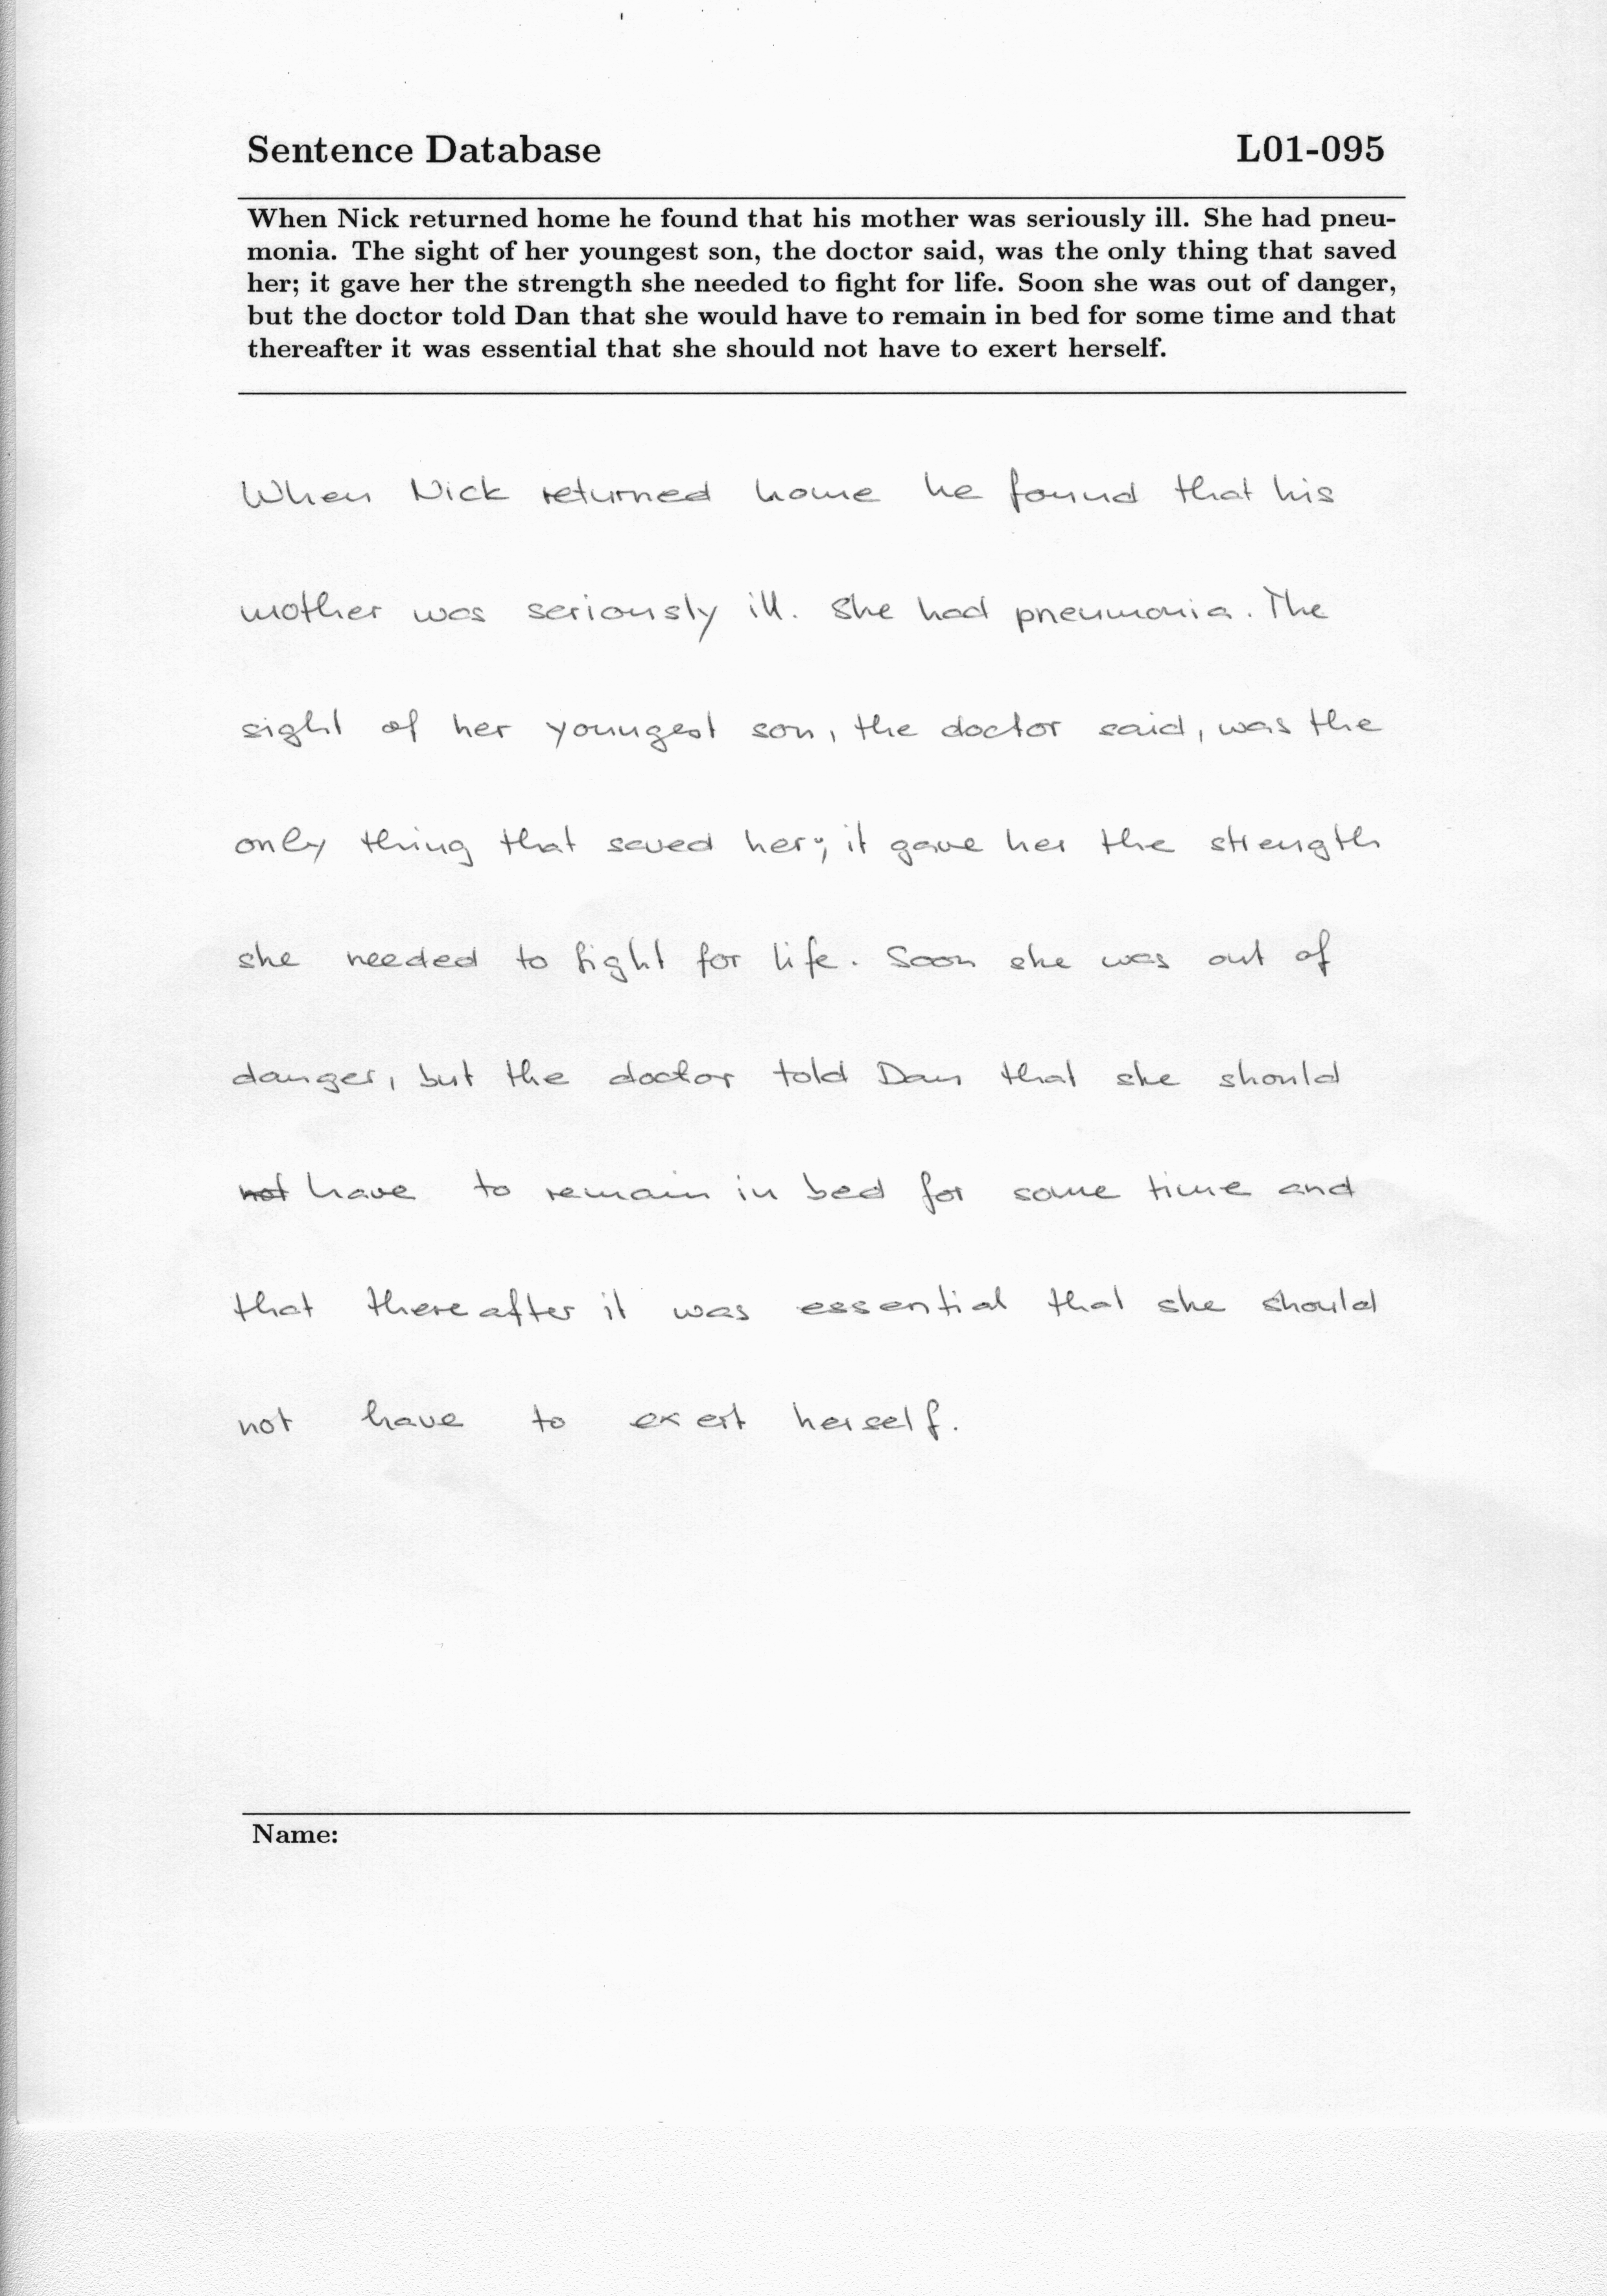 Sentence Database L01-095
When Nick returned home he found that his mother was seriously ill. She had pneu-
monia. The sight of her youngest son, the doctor said, was the only thing that saved
her; it gave her the strength she needed to fight for life. Soon she was out of danger,
but the doctor told Dan that she would have to remain in bed for some time and that
thereafter it was essential that she should not have to exert herself.
When Nick returned home he found that his
mother was seriously ill. She had pneumonia. The
sight of her youngest son, the doctor said, was the
only thing that saved her; it gave her the strength
she needed to fight for life. Soon she was out of
danger, but the doctor told Dan that she should
not have to remain in bed for some time and
that thereafter it was essential that she should
not have to exert herself.
Name: